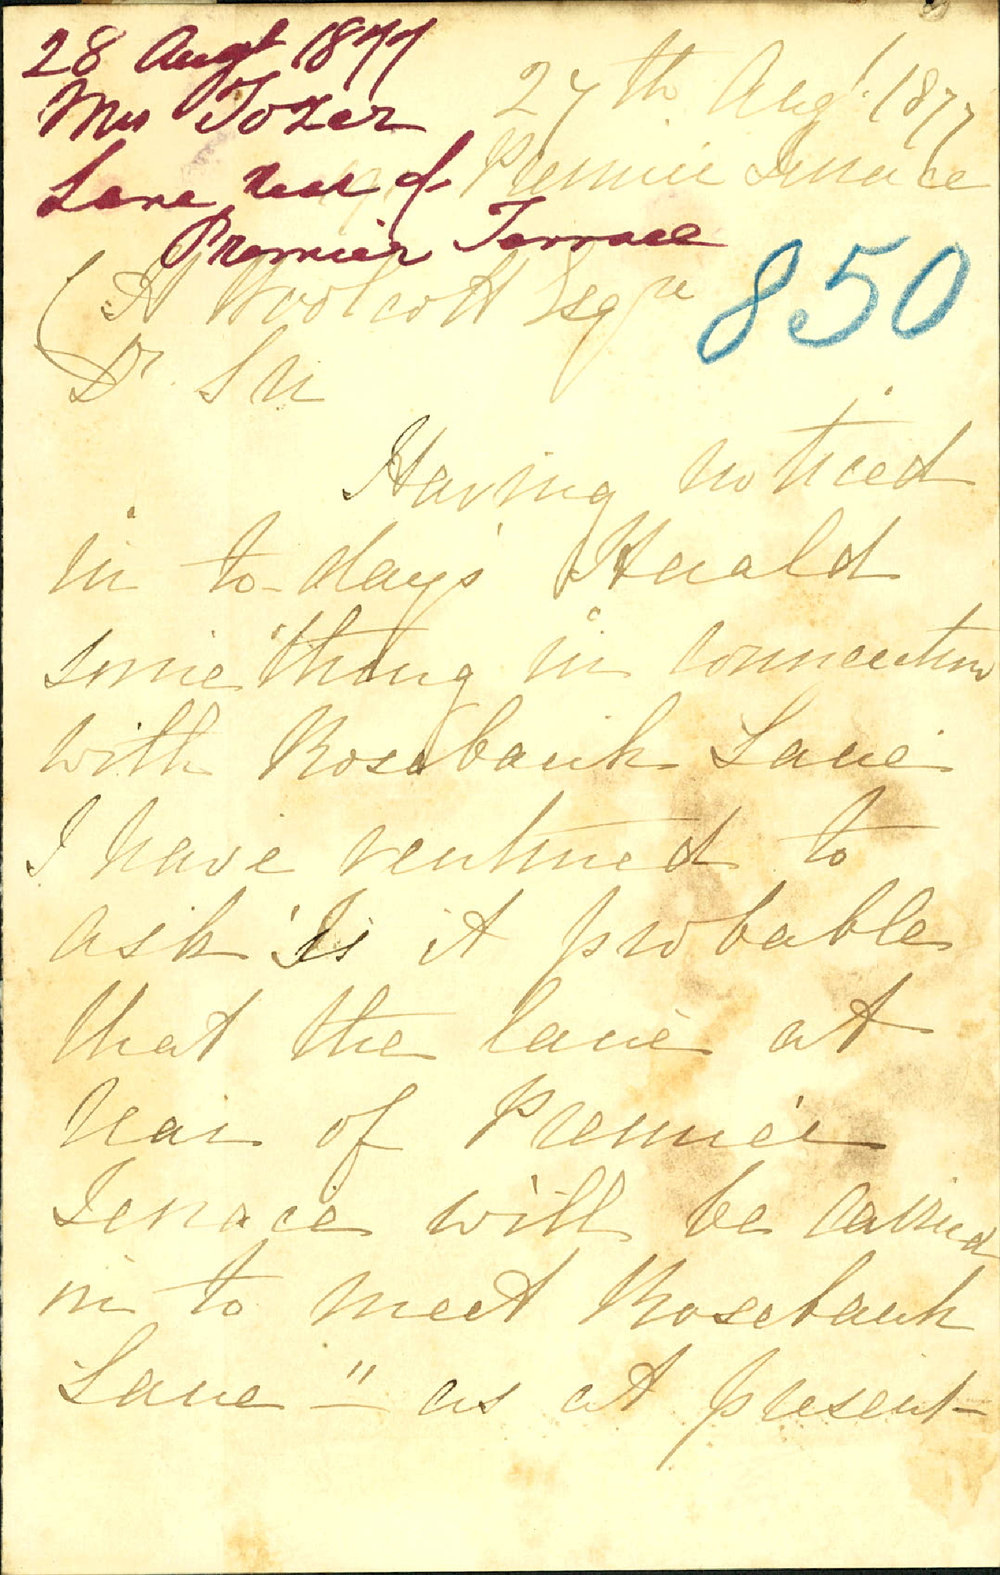 28 Augt 1877
Mrs Tozer
Lane rear of
Premier Terrace
27th Augt 1877
Premier Terrace
850
C H Woolcott Esqre
Dr Sir
Having noticed
in to-days Herald
something in connection
with Rosebank Lane
I have ventured to
ask "Is it probable
that the lane at
rear of Premier
Terrace will be carried
in to meet Rosebank
Lane" – as at present